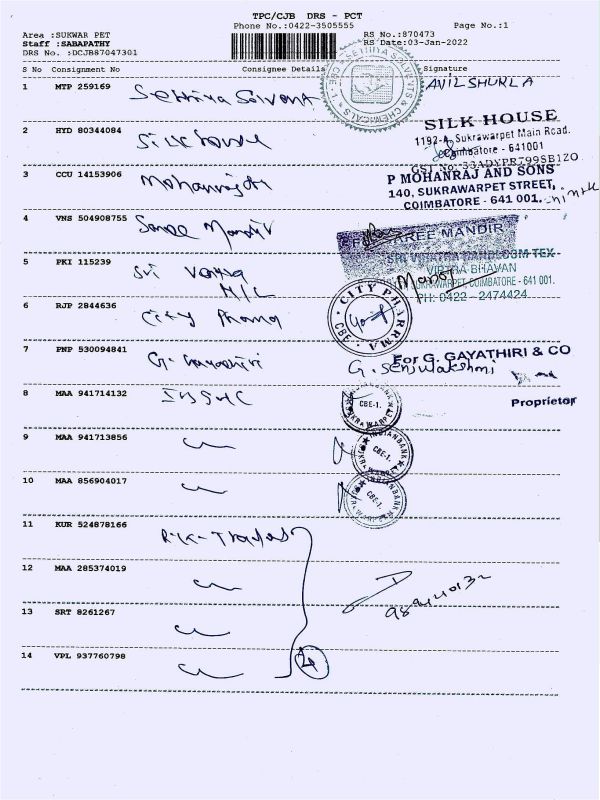 TPC/CJB DRS - PCT
Phone No.:0422-3505555 Page No.:1
Area :SUKWAR PET RS No.:870473
Staff :SABAPATHY RS Date:03-Jan-2022
DRS No. :DCJB87047301
S No Consignment No Consignee Details Signature
1 MTP 259169 Sethiya Solvent AVIL SHUKLA
2 HYD 80344084 Silk house
SILK HOUSE
1192-A, Sukrawarpet Main Road.
Coimbatore - 641001
GST No: 33ADYPR799SB1ZO
3 CCU 14153906
P MOHANRAJ AND SONS
140, SUKRAWARPET STREET,
COIMBATORE - 641 001.
4 VNS 504908755 Mandir
SAREE MANDIR
5 PKI 115239 Sri
SRI VIRTRA HANDLOOM TEX
VIRTRA BHAVAN
SUKRAWARPET, COIMBATORE - 641 001.
PH: 0422 - 2474424
Manoj
6 RJP 2844636 City Pharma
CITY PHARMA
CBE
7 PNP 530094841 G. Gayathiri
For G. GAYATHIRI & CO
G. Senjulakshmi
Proprietor
8 MAA 941714132
CBE-1.
9 MAA 941713856
INDIAN BANK
CBE-1.
10 MAA 856904017
INDIAN BANK
CBE-1.
11 KUR 524878166 R.K. Traders
12 MAA 285374019
13 SRT 8261267
14 VPL 937760798 4